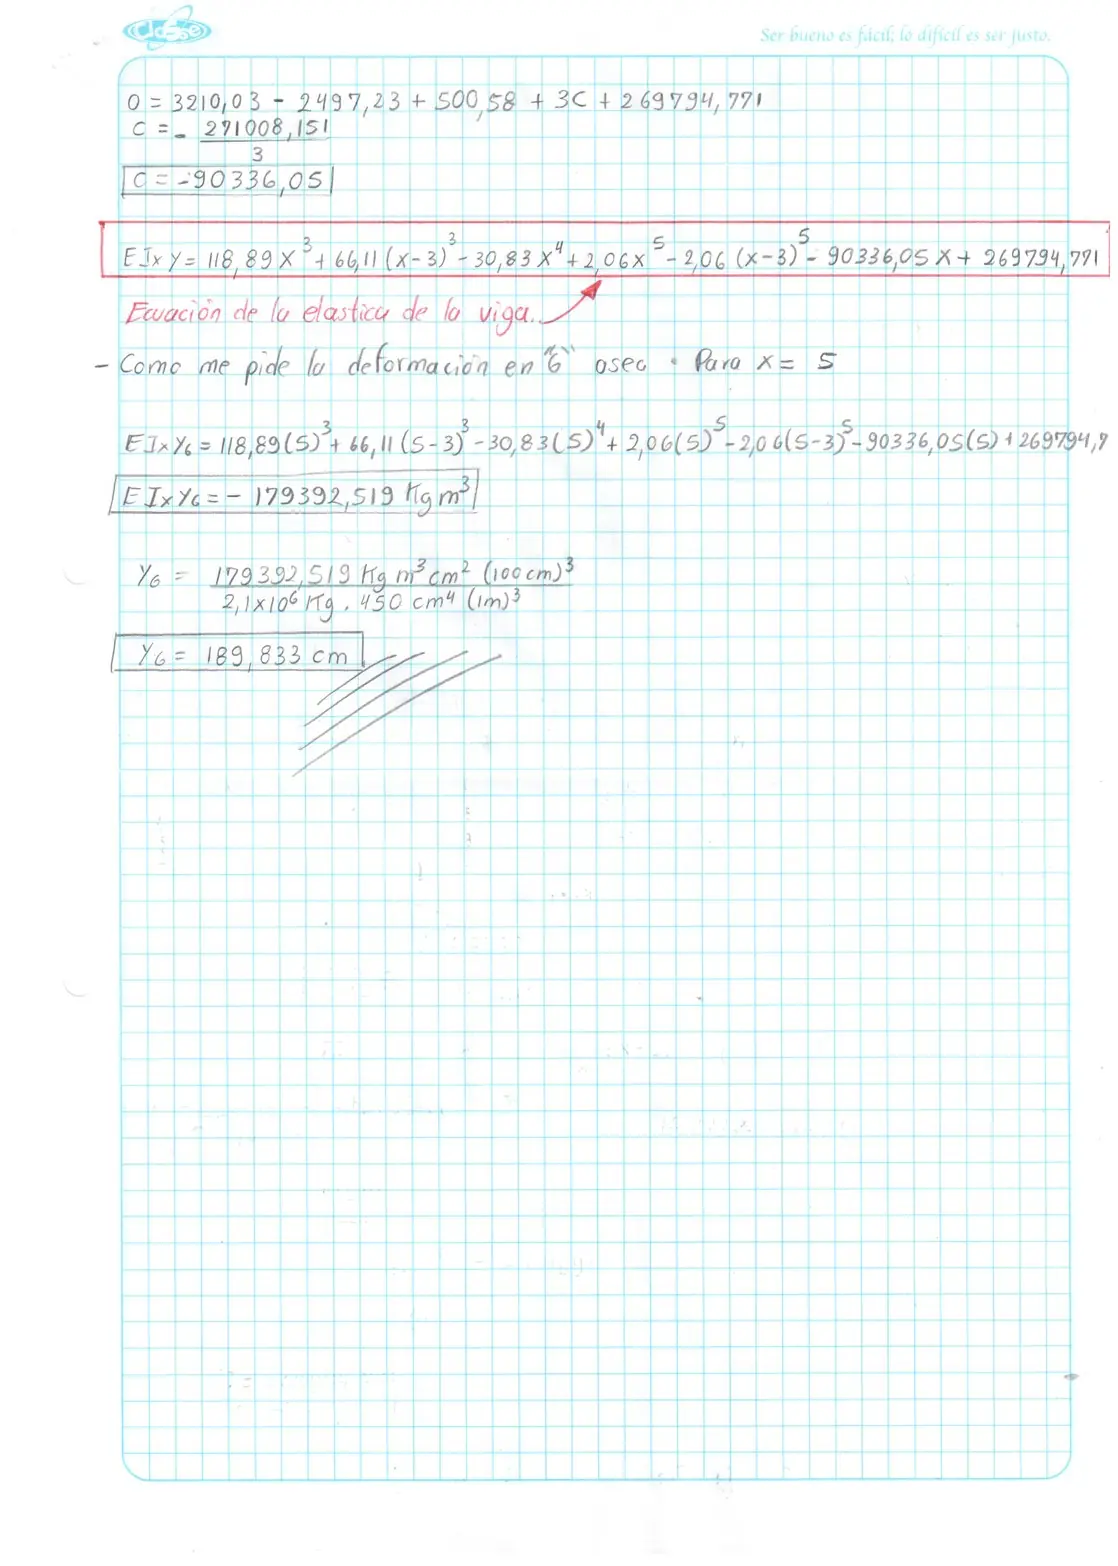 Clase
Ser bueno es fácil; lo difícil es ser justo.
0 = 3210,03 - 2497,23 + 500,58 + 3C + 269794,771
C = - 271008,151
3
C = -90336,05
EIx Y = 118,89 X³ + 66,11 (x-3)³ - 30,83 X⁴ + 2,06 x⁵ - 2,06 (x-3)⁵ - 90336,05 X + 269794,771
Ecuación de la elastica de la viga.
- Como me pide la deformación en "6" osea . Para x = 5
EIx Y6 = 118,89(5)³ + 66,11 (5-3)³ - 30,83(5)⁴ + 2,06(5)⁵ - 2,06(5-3)⁵ - 90336,05(5) + 269794,7
EIx Y6 = - 179392,519 Kg m³
Y6 = 179392,519 Kg m³ cm² (100 cm)³
2,1x10⁶ Kg . 450 cm⁴ (1m)³
Y6 = 189,833 cm